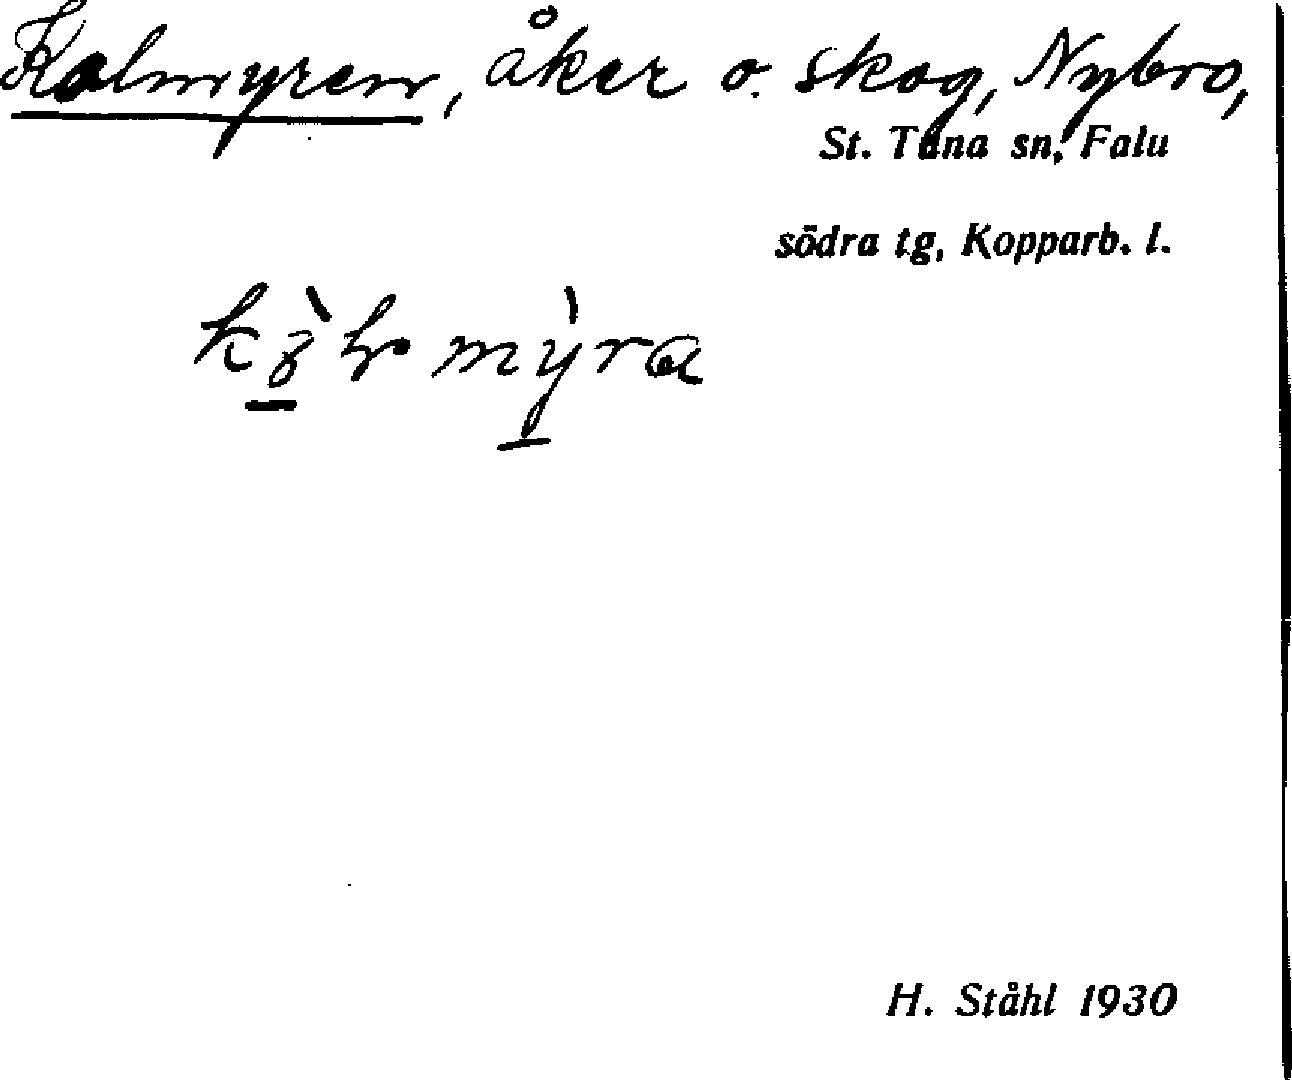 Kolmyren, åker o. skog, Nybro,
St. Tuna sn, Falu
södra tg, Kopparb. l.
H. Ståhl 1930